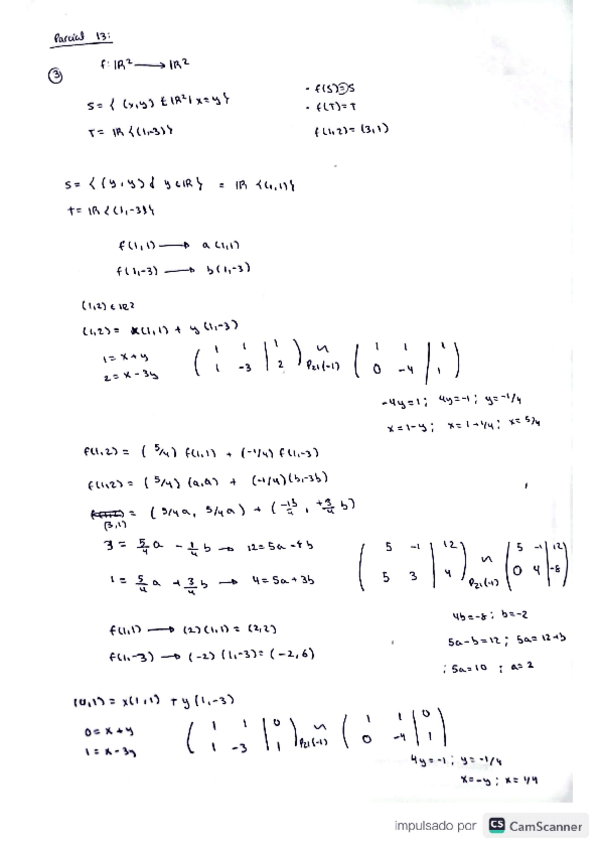 Parcial 13:
③ f: IR² ⟶ IR²
S = { (x,y) ∈ IR² | x=y }
· f(S)=S
T = IR {(1,-3)}
· f(T)=T
f(1,2)= (3,1)
S= { (y,y) { y ∈ IR } = IR {(1,1)}
T= IR {(1,-3)}
f(1,1) ⟶ a(1,1)
f(1,-3) ⟶ b(1,-3)
(1,2) ∈ IR²
(1,2)= x(1,1) + y(1,-3)
1 = x+y
2 = x-3y
( 1 1 | 1
1 -3 | 2 ) ~ P21(-1) ( 1 1 | 1
0 -4 | 1 )
-4y=1; 4y=-1; y=-1/4
x=1-y; x=1+1/4; x=5/4
f(1,2) = (5/4) f(1,1) + (-1/4) f(1,-3)
f(1,2) = (5/4) (a,a) + (-1/4)(b,-3b)
(3,1) = (5/4a, 5/4a) + (-1b/4, +3/4 b)
3 = 5/4 a - 1/4 b → 12=5a-b
1 = 5/4 a + 3/4 b → 4=5a+3b
( 5 -1 | 12
5 3 | 4 ) ~ P21(-1) ( 5 -1 | 12
0 4 | -8 )
4b=-8; b=-2
5a-b=12; 5a=12+b
; 5a=10 ; a=2
f(1,1) ⟶ (2)(1,1)= (2,2)
f(1,-3) → (-2) (1,-3)= (-2,6)
(0,1) = x(1,1) + y(1,-3)
0=x+y
1=x-3y
( 1 1 | 0
1 -3 | 1 ) ~ P21(-1) ( 1 1 | 0
0 -4 | 1 )
4y=-1; y=-1/4
x=-y; x=1/4
impulsado por CS CamScanner